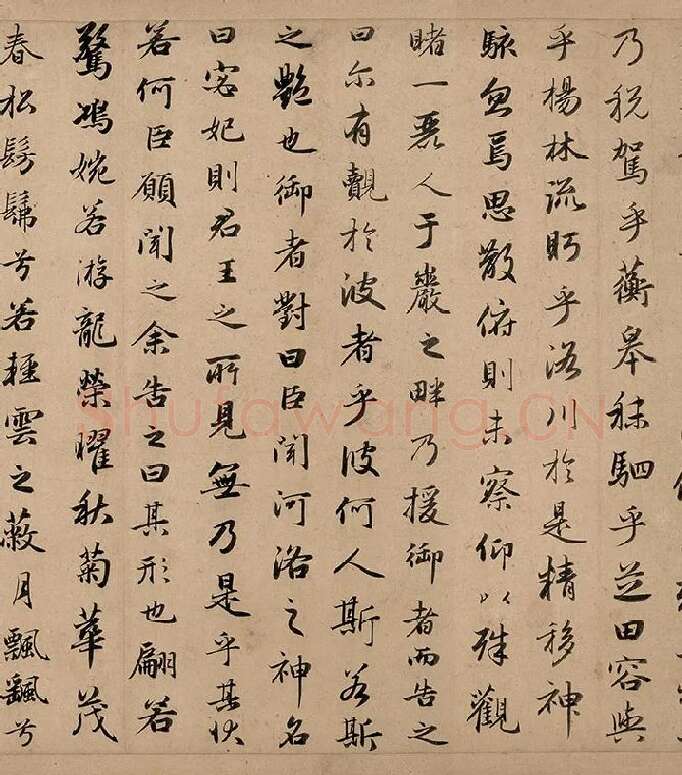 乃税駕乎蘅皋秣駟乎芝田容與
乎楊林流眄乎洛川於是精移神
駭忽焉思散俯則未察仰以殊觀
睹一麗人于巖之畔乃援御者而告之
曰尔有覿於彼者乎彼何人斯若斯
之艷也御者對曰臣聞河洛之神名
曰宓妃則君王之所見無乃是乎其狀
若何臣願聞之余告之曰其形也翩若
驚鴻婉若游龍榮曜秋菊華茂
春松髣髴兮若輕雲之蔽月飄颻兮
shufawang.CN